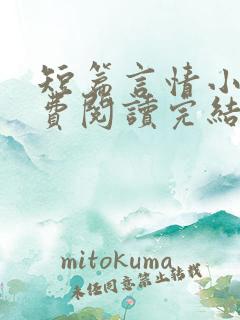 短篇言情小
費閱讀完結
mitokuma
未经同意禁止转载